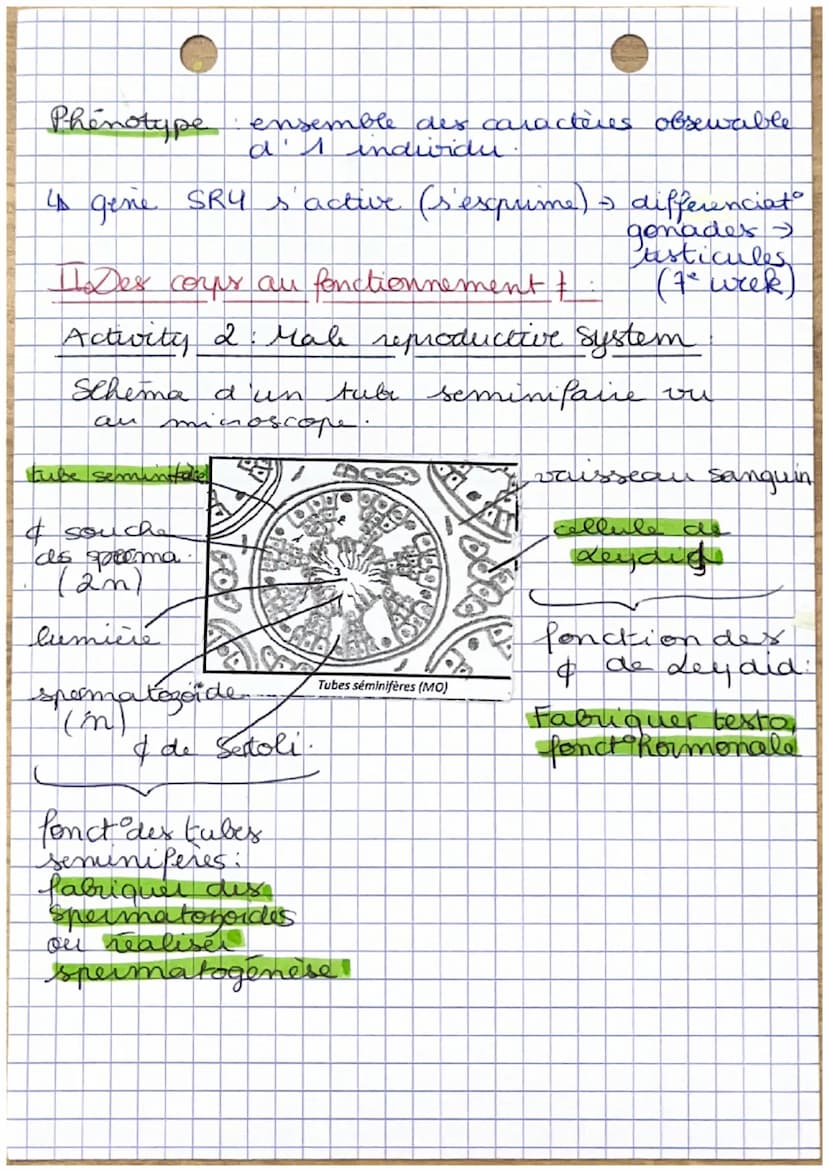 Phénotype : ensemble des caractères observable
d'1 individu.
↳ gène SRY s'active (s'exprime) → différenciat°
gonades →
testicules
(7e week)
II. Des corps au fonctionnement ≠ :
Activity 2 : Male reproductive system :
Schéma d'un tube seminifaire vu
au microscope.
tube seminifère
vaisseau sanguin
¢ souche
ds sperma.
(2n)
cellule de
Leydig
lumière
fonction des
¢ de Leydid :
spermatozoïde
(n)
3
Tubes séminifères (MO)
¢ de Sertoli.
Fabriquer testo,
fonct° hormonale
fonct° des tubes
seminifères :
fabriquer des
spermatozoides
ou réaliser
spermatogénèse